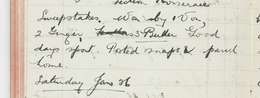 Sweepstakes. Won by Von,
2 Ginger, 3 Butler Good
days sport. Posted snaps & parcel
home.
Saturday Jan 26